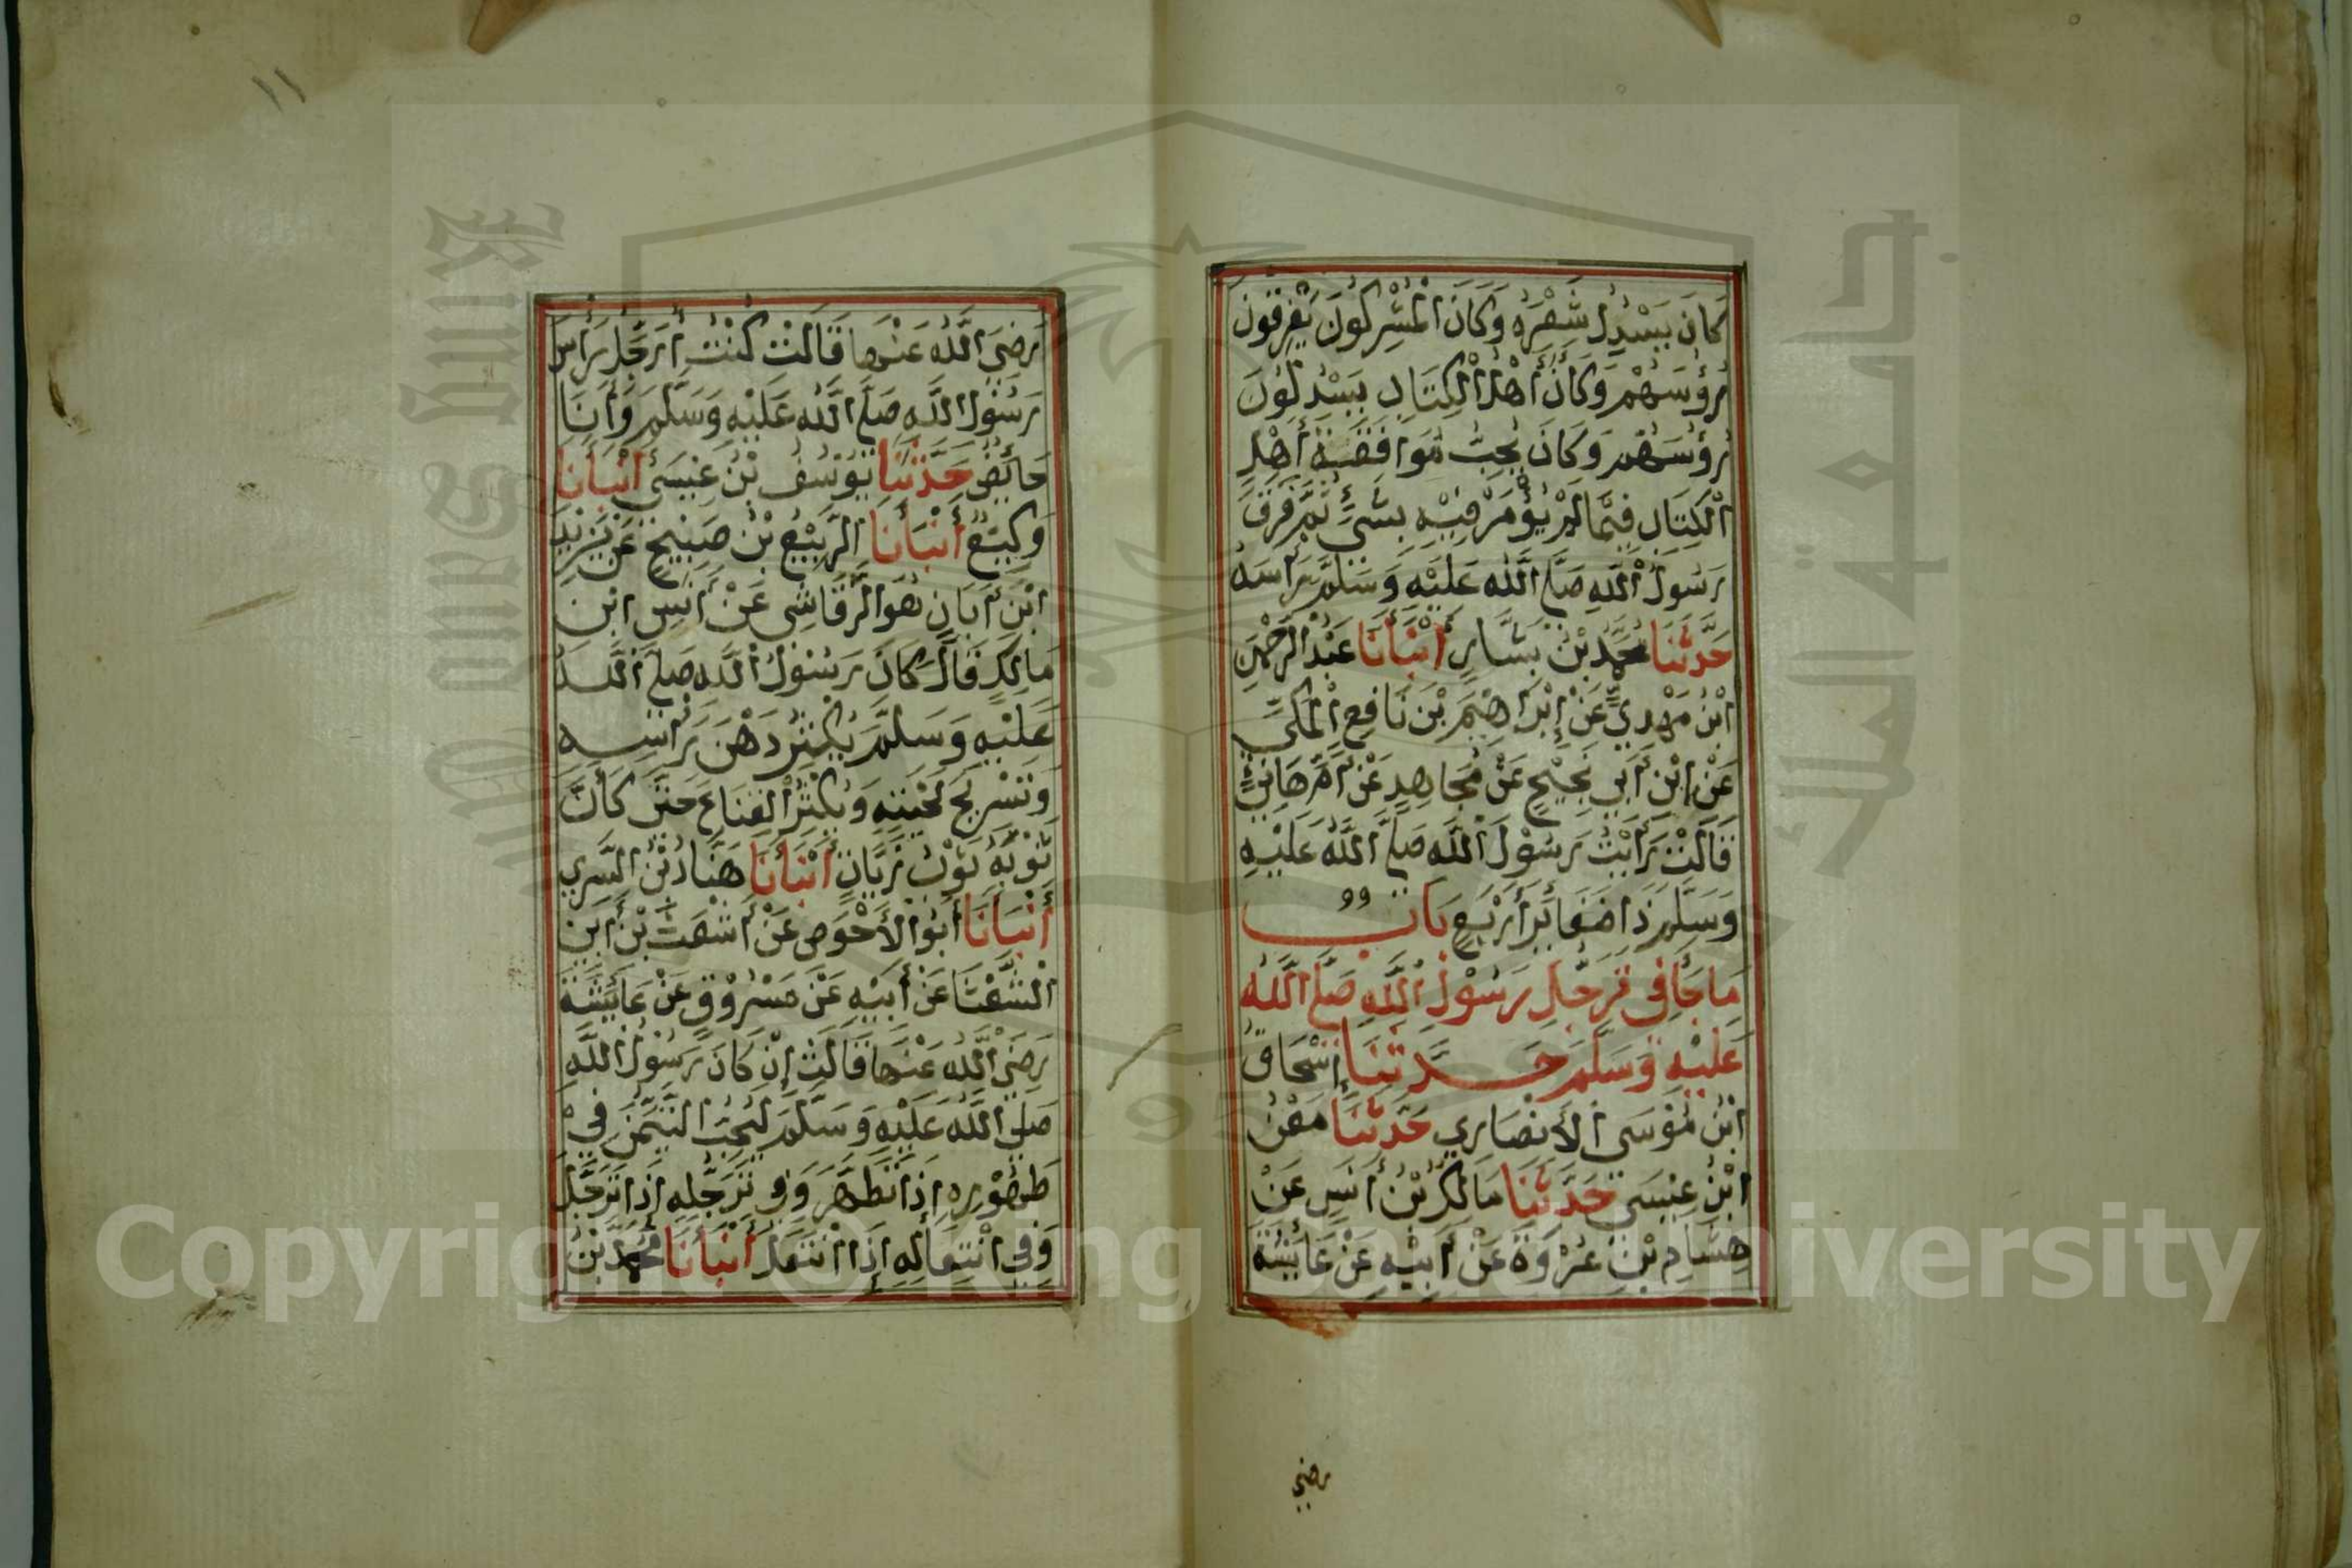 كَانَ يَسْدِلُ شَعْرَهُ وَكَانَ الْمُشْرِكُونَ يَفْرِقُونَ
رُؤُسَهُمْ وَكَانَ أَهْلُ الْكِتَابِ يَسْدِلُونَ
رُؤُسَهُمْ وَكَانَ يُحِبُّ مُوَافَقَةَ أَهْلِ
الْكِتَابِ فِيمَا لَمْ يُؤْمَرْ فِيْهِ بِشَيْءٍ ثُمَّ فَرَقَ
رَسُولُ اللَّهِ صَلَّى اللَّهُ عَلَيْهِ وَسَلَّمَ رَأْسَهُ
حَدَّثَنَا مُحَمَّدُ بْنُ بَشَّارٍ أَنْبَأَنَا عَبْدُ الرَّحْمٰنِ
ابْنُ مَهْدِيٍّ عَنْ إِبْرَاهِيْمَ بْنِ نَافِعٍ الْمَكِّيِّ
عَنِ ابْنِ أَبِي نَجِيْحٍ عَنْ مُجَاهِدٍ عَنْ أُمِّ هَانِئٍ
قَالَتْ رَأَيْتُ رَسُوْلَ اللَّهِ صَلَّى اللَّهُ عَلَيْهِ
وَسَلَّمَ ذَا ضَفَائِرَ أَرْبَعٍ بَابُ
مَا جَاءَ فِي تَرَجُّلِ رَسُوْلِ اللَّهِ صَلَّى اللَّهُ
عَلَيْهِ وَسَلَّمَ حَدَّثَنَا إِسْحَاقُ
ابْنُ مُوْسَى الأَنْصَارِي حَدَّثَنَا مَعْنُ
ابْنُ عِيْسَى حَدَّثَنَا مَالِكُ بْنُ أَنَسٍ عَنْ
هِشَامِ بْنِ عُرْوَةَ عَنْ أَبِيْهِ عَنْ عَائِشَةَ
رضي
١١
رَضِيَ اللَّهُ عَنْهَا قَالَتْ كُنْتُ أُرَجِّلُ رَأْسَ
رَسُوْلِ اللَّهِ صَلَّى اللَّهُ عَلَيْهِ وَسَلَّمَ وَأَنَا
حَائِضٌ حَدَّثَنَا يُوْسُفُ بْنُ عِيْسَى أَنْبَأَنَا
وَكِيْعٌ أَنْبَأَنَا الرَّبِيْعُ بْنُ صَبِيْحٍ عَنْ يَزِيْدَ
ابْنِ أَبَانَ هُوَ الرَّقَاشِي عَنْ أَنَسِ ابْنِ
مَالِكٍ قَالَ كَانَ رَسُوْلُ اللَّهِ صَلَّى اللَّهُ
عَلَيْهِ وَسَلَّمَ يُكْثِرُ دَهْنَ رَأْسِهِ
وَتَسْرِيْحَ لِحْيَتِهِ وَيُكْثِرُ الْقِنَاعَ حَتَّى كَأَنَّ
ثَوْبَهُ ثَوْبُ زَيَّاتٍ أَنْبَأَنَا هَنَّادُ بْنُ السَّرِي
أَنْبَأَنَا أَبُو الأَحْوَصِ عَنْ أَشْعَثَ بْنِ أَبِي
الشَّعْثَا عَنْ أَبِيْهِ عَنْ مَسْرُوْقٍ عَنْ عَائِشَةَ
رَضِيَ اللَّهُ عَنْهَا قَالَتْ إِنْ كَانَ رَسُوْلُ اللَّهِ
صَلَّى اللَّهُ عَلَيْهِ وَسَلَّمَ لَيُحِبُّ التَّيَمُّنَ فِي
طُهُوْرِهِ إِذَا تَطَهَّرَ وَفِي تَرَجُّلِهِ إِذَا تَرَجَّلَ
وَفِي انْتِعَالِهِ إِذَا انْتَعَلَ أَنْبَأَنَا مُحَمَّدُ بْنُ
جامعة الملك
King Saud University
Copyright © King Saud University